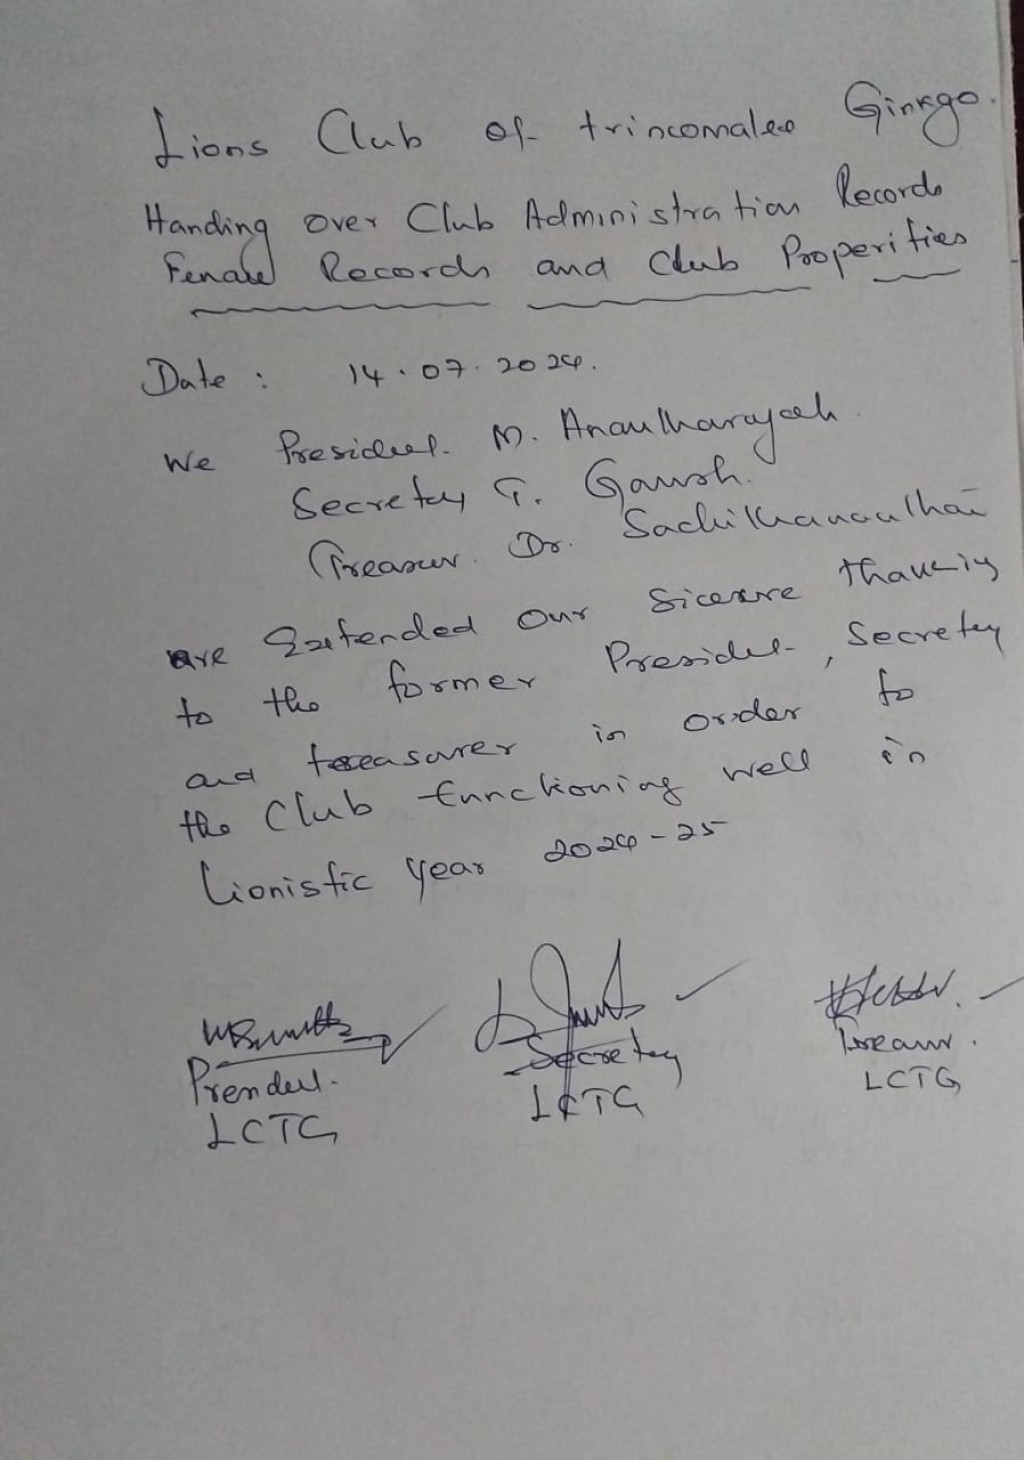 Lions Club of trincomalee Ginkgo.
Handing over Club Administration Records
Records and Club Properities
Date : 14.07.2024.
We President. M. Anantharajah
Secretary T. Ganesh.
Treasurer. Dr.
are Extended our Sicerere thanking
to the former President, Secretary
and treasurer in order to
the Club functioning well in
Lionistic year 2024-25
President.
LCTG
Secretary
LCTG
Treasurer.
LCTG